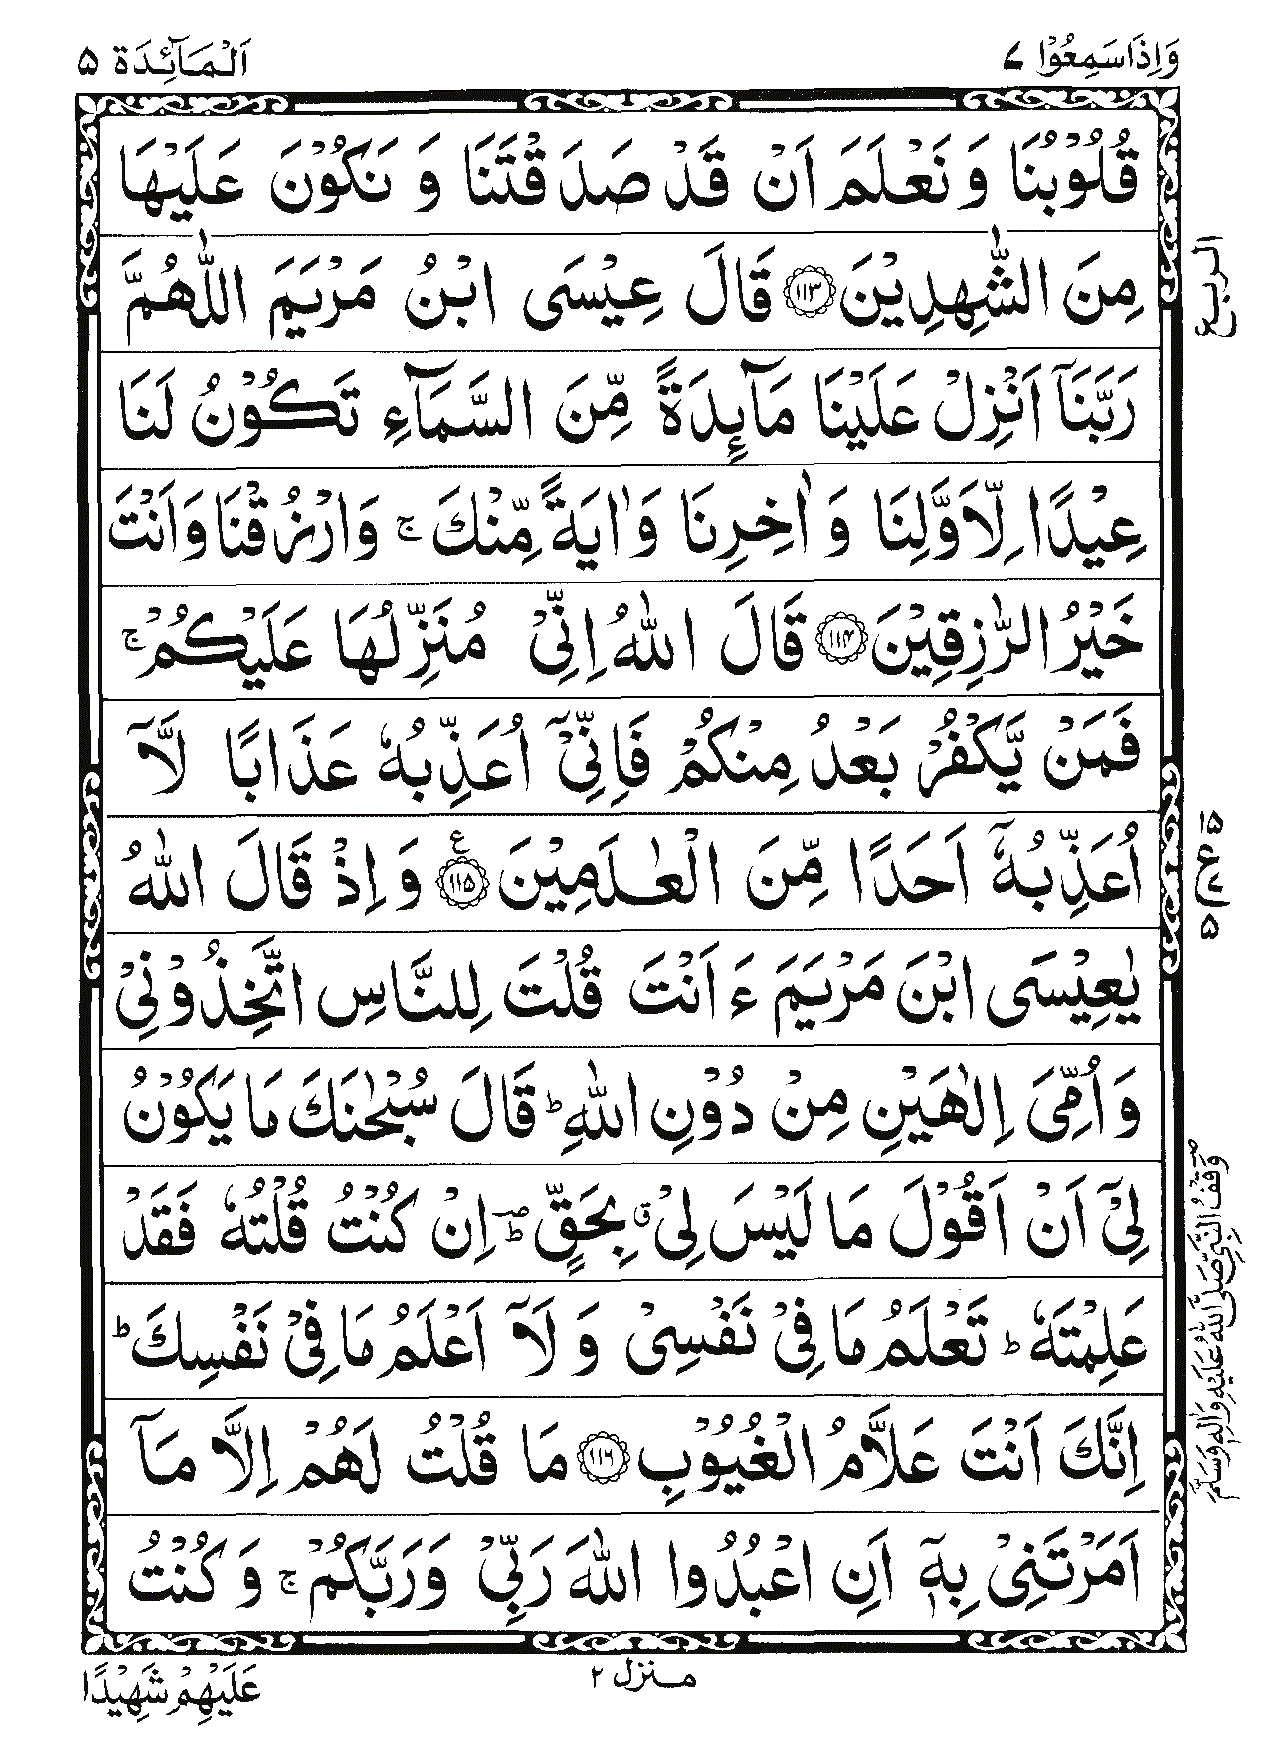 وَاِذَاسَمِعُوْا ٧
اَلْمَآئِدَة ۵
قُلُوْبُنَا وَ نَعْلَمَ اَنْ قَدْ صَدَقْتَنَا وَ نَكُوْنَ عَلَيْهَا
مِنَ الشّٰهِدِيْنَ ۝۱۱۳ قَالَ عِيْسَى ابْنُ مَرْيَمَ اللّٰهُمَّ
رَبَّنَآ اَنْزِلْ عَلَيْنَا مَآئِدَةً مِّنَ السَّمَآءِ تَكُوْنُ لَنَا
عِيْدًا لِّاَوَّلِنَا وَ اٰخِرِنَا وَاٰيَةً مِّنْكَ ۚ وَارْزُقْنَا وَاَنْتَ
خَيْرُ الرّٰزِقِيْنَ ۝۱۱۴ قَالَ اللّٰهُ اِنِّيْ مُنَزِّلُهَا عَلَيْكُمْ ۚ
فَمَنْ يَّكْفُرْ بَعْدُ مِنْكُمْ فَاِنِّيْٓ اُعَذِّبُهٗ عَذَابًا لَّآ
اُعَذِّبُهٗٓ اَحَدًا مِّنَ الْعٰلَمِيْنَ ۝۱۱۵ ع وَ اِذْ قَالَ اللّٰهُ
يٰعِيْسَى ابْنَ مَرْيَمَ ءَ اَنْتَ قُلْتَ لِلنَّاسِ اتَّخِذُوْنِيْ
وَ اُمِّيَ اِلٰهَيْنِ مِنْ دُوْنِ اللّٰهِ ؕ قَالَ سُبْحٰنَكَ مَا يَكُوْنُ
لِيْٓ اَنْ اَقُوْلَ مَا لَيْسَ لِيْ ق بِحَقٍّ ؕ اِنْ كُنْتُ قُلْتُهٗ فَقَدْ
عَلِمْتَهٗ ؕ تَعْلَمُ مَا فِيْ نَفْسِيْ وَ لَآ اَعْلَمُ مَا فِيْ نَفْسِكَ ؕ
اِنَّكَ اَنْتَ عَلَّامُ الْغُيُوْبِ ۝۱۱۶ مَا قُلْتُ لَهُمْ اِلَّا مَآ
اَمَرْتَنِيْ بِهٖٓ اَنِ اعْبُدُوا اللّٰهَ رَبِّيْ وَرَبَّكُمْ ۚ وَ كُنْتُ
الربع
۱۵
ع
۵
وَقْفُ النَّبِيِّ صَلَّى اللّٰهُ عَلَيْهِ وَاٰلِهٖ وَسَلَّمَ
منزل ۲
عَلَيْهِمْ شَهِيْدًا